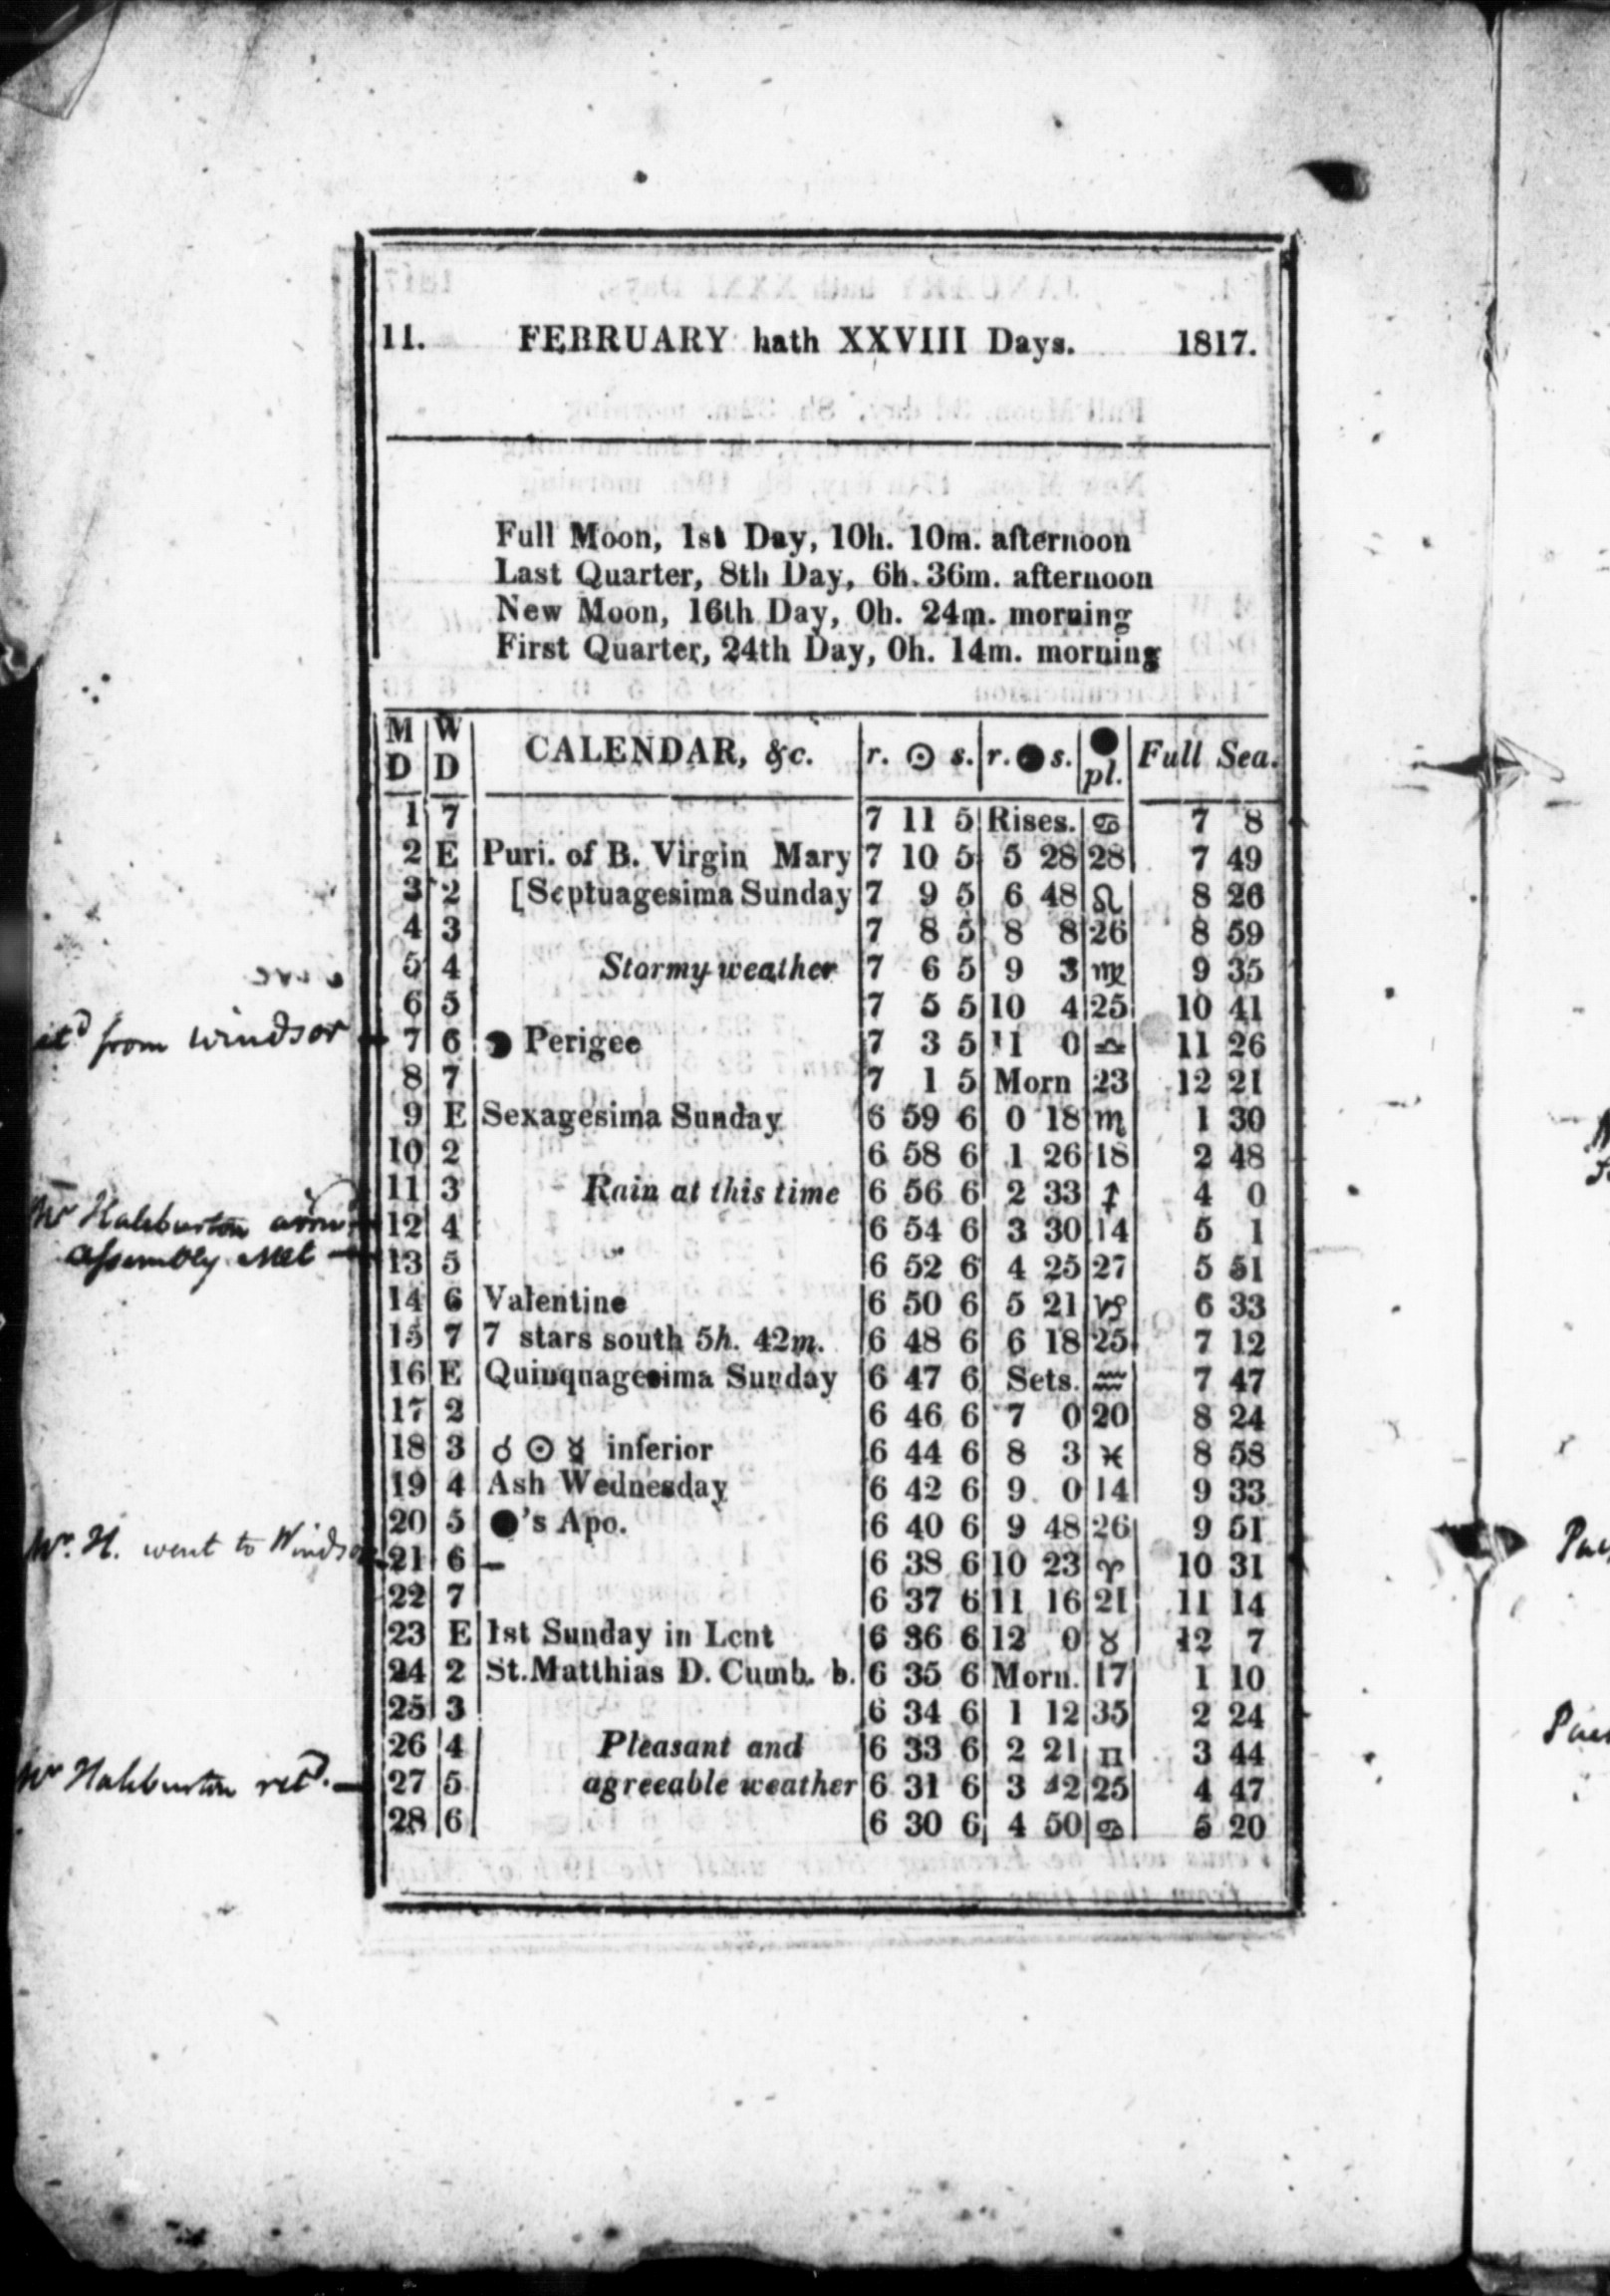 11. FEBRUARY hath XXVIII Days. 1817.
Full Moon, 1st Day, 10h. 10m. afternoon
Last Quarter, 8th Day, 6h. 36m. afternoon
New Moon, 16th Day, 0h. 24m. morning
First Quarter, 24th Day, 0h. 14m. morning
M D W D CALENDAR, &c. r. ☉ s. r. ● s. ● pl. Full Sea.
1 7 7 11 5 Rises. ♋ 7 8
2 E Puri. of B. Virgin Mary 7 10 5 5 28 28 7 49
3 2 [Septuagesima Sunday 7 9 5 6 48 ♌ 8 26
4 3 7 8 5 8 8 26 8 59
5 4 Stormy weather 7 6 5 9 3 ♍ 9 35
6 5 7 5 5 10 4 25 10 41
from Windsor — 7 6 ● Perigee 7 3 5 11 0 ♎ 11 26
8 7 7 1 5 Morn 23 12 21
9 E Sexagesima Sunday 6 59 6 0 18 ♏ 1 30
10 2 6 58 6 1 26 18 2 48
11 3 Rain at this time 6 56 6 2 33 ♐ 4 0
Mr Haliburton 12 4 6 54 6 3 30 14 5 1
assembly Met — 13 5 6 52 6 4 25 27 5 51
14 6 Valentine 6 50 6 5 21 ♑ 6 33
15 7 7 stars south 5h. 42m. 6 48 6 6 18 25 7 12
16 E Quinquagesima Sunday 6 47 6 Sets. ♒ 7 47
17 2 6 46 6 7 0 20 8 24
18 3 ☌ ☉ ☿ inferior 6 44 6 8 3 ♓ 8 58
19 4 Ash Wednesday 6 42 6 9 0 14 9 33
20 5 ●'s Apo. 6 40 6 9 48 26 9 51
Mr. H. went to Windsor 21 6 – 6 38 6 10 23 ♈ 10 31
22 7 6 37 6 11 16 21 11 14
23 E 1st Sunday in Lent 6 36 6 12 0 ♉ 12 7
24 2 St. Matthias D. Cumb. b. 6 35 6 Morn. 17 1 10
25 3 6 34 6 1 12 35 2 24
26 4 Pleasant and 6 33 6 2 21 ♊ 3 44
Mr Haliburton retd. — 27 5 agreeable weather 6 31 6 3 42 25 4 47
28 6 6 30 6 4 50 ♋ 5 20